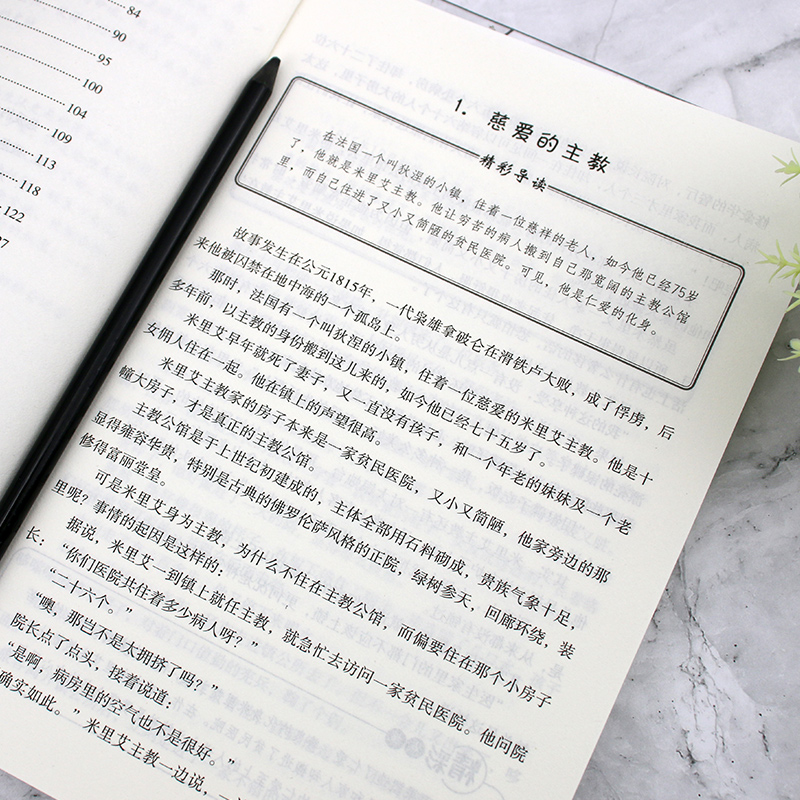 84
90
95
100
104
109
113
118
122
27
1. 慈爱的主教
精彩导读
在法国一个叫狄涅的小镇，住着一位慈祥的老人，如今他已经75岁
了，他就是米里艾主教。他让穷苦的病人搬到自己那宽阔的主教公馆
里，而自己住进了又小又简陋的贫民医院。可见，他是仁爱的化身。
故事发生在公元1815年，一代枭雄拿破仑在滑铁卢大败，成了俘虏，后
来他被囚禁在地中海的一个孤岛上。
那时，法国有一个叫狄涅的小镇，住着一位慈爱的米里艾主教。他是十
多年前，以主教的身份搬到这儿来的，如今他已经七十五岁了。
米里艾早年就死了妻子，又一直没有孩子，和一个年老的妹妹及一个老
女佣人住在一起。他在镇上的声望很高。
米里艾主教家的房子本来是一家贫民医院，又小又简陋，他家旁边的那
幢大房子，才是真正的主教公馆。
主教公馆是于上世纪初建成的，主体全部用石料砌成，贵族气象十足，
显得雍容华贵，特别是古典的佛罗伦萨风格的正院，绿树参天，回廊环绕，装
修得富丽堂皇。
可是米里艾身为主教，为什么不住在主教公馆，而偏要住在那个小房子
里呢？事情的起因是这样的：
据说，米里艾一到镇上就任主教，就急忙去访问一家贫民医院。他问院
长：“你们医院共住着多少病人呀？”
“二十六个。”
“噢，那岂不是太拥挤了吗？”
院长点了点头，接着说道：
“是啊，病房里的空气也不是很好。”
确实如此。”米里艾主教一边说，一